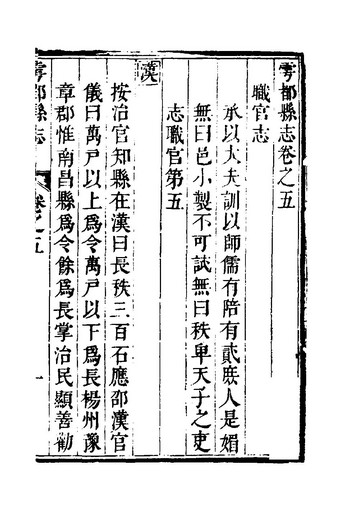 雩都縣志卷之五
職官志
承以大夫訓以師儒有陪有貳庶人是媚
無曰邑小製不可試無曰秩卑天子之吏
志職官第五
漢
按治官知縣在漢曰長秩三百石應邵漢官
儀曰萬戸以上爲令萬戸以下爲長楊州豫
章郡惟南昌縣爲令餘爲長掌治民顯善勸
雩都縣志
卷之五
一